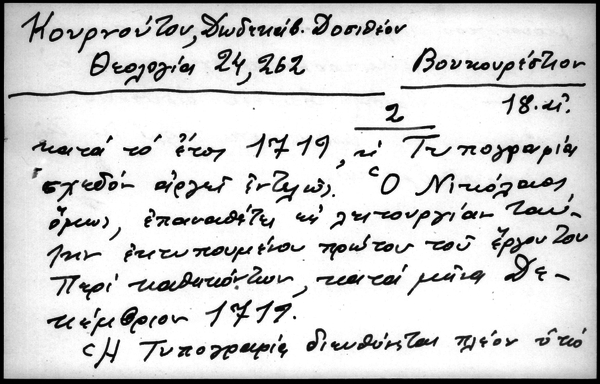 Κουρνούτου, Δωδεκάβ. Δοσιθέου
Θεολογία 24, 262
Βουκουρέστιον
2
18. μ.
κατά τό ἔτος 1719, ἡ Τυπογραφία
σχεδόν ἀργεῖ ἐντελῶς. Ὁ Νικόλαος
ὅμως, ἐπαναθέτει εἰς λειτουργίαν ταύ-
την ἐκτυπουμένου πρῶτον τοῦ ἔργου του
Περί καθηκόντων, κατά μῆνα Δε-
κέμβριον 1719.
Ἡ Τυπογραφία διευθύνεται πλέον ὑπό